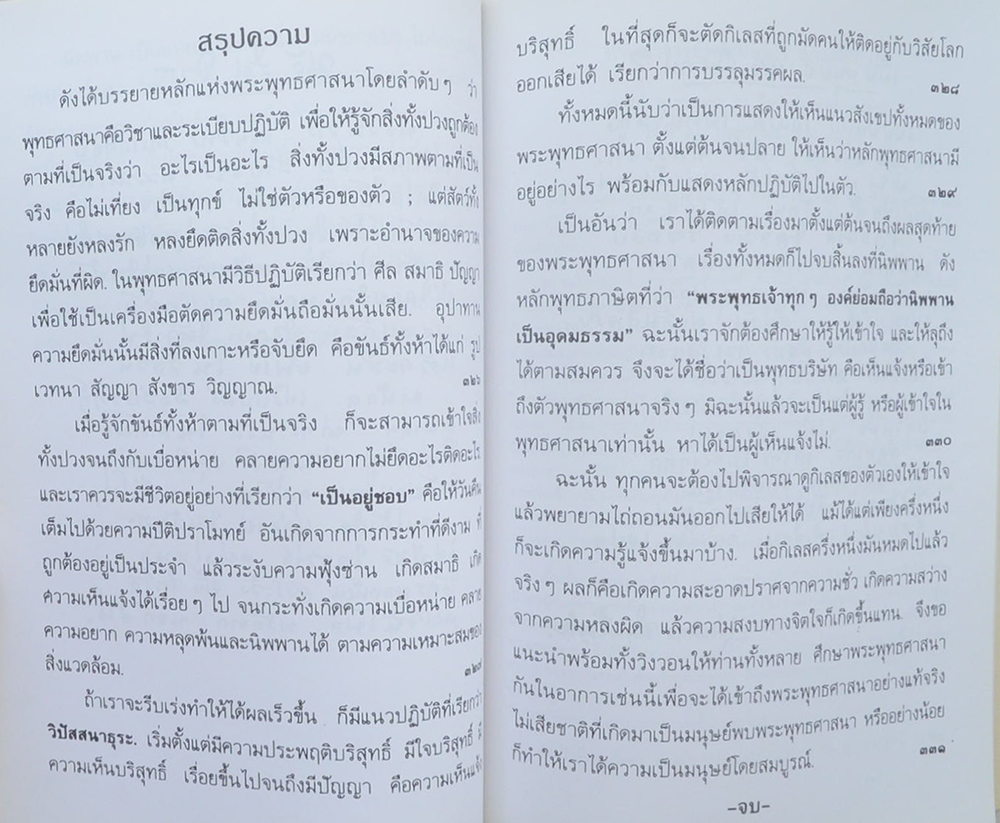 สรุปความ
ดังได้บรรยายหลักแห่งพระพุทธศาสนาโดยลำดับๆ ว่า
พุทธศาสนาคือวิชาและระเบียบปฏิบัติ เพื่อให้รู้จักสิ่งทั้งปวงถูกต้อง
ตามที่เป็นจริงว่า อะไรเป็นอะไร สิ่งทั้งปวงมีสภาพตามที่เป็น
จริง คือไม่เที่ยง เป็นทุกข์ ไม่ใช่ตัวหรือของตัว ; แต่สัตว์ทั้ง
หลายยังหลงรัก หลงยึดติดสิ่งทั้งปวง เพราะอำนาจของความ
ยึดมั่นที่ผิด. ในพุทธศาสนามีวิธีปฏิบัติเรียกว่า ศีล สมาธิ ปัญญา
เพื่อใช้เป็นเครื่องมือตัดความยึดมั่นถือมั่นนั้นเสีย. อุปาทาน
ความยึดมั่นนั้นมีสิ่งที่ลงเกาะหรือจับยึด คือขันธ์ทั้งห้าได้แก่ รูป
เวทนา สัญญา สังขาร วิญญาณ. ๓๒๖
เมื่อรู้จักขันธ์ทั้งห้าตามที่เป็นจริง ก็จะสามารถเข้าใจสิ่ง
ทั้งปวงจนถึงกับเบื่อหน่าย คลายความอยากไม่ยึดอะไรติดอะไร
และเราควรจะมีชีวิตอยู่อย่างที่เรียกว่า “เป็นอยู่ชอบ” คือให้วันคืน
เต็มไปด้วยความปีติปราโมทย์ อันเกิดจากการกระทำที่ดีงาม ที่
ถูกต้องอยู่เป็นประจำ แล้วระงับความฟุ้งซ่าน เกิดสมาธิ เกิด
ความเห็นแจ้งได้เรื่อยๆ ไป จนกระทั่งเกิดความเบื่อหน่าย คลาย
ความอยาก ความหลุดพ้นและนิพพานได้ ตามความเหมาะสมของ
สิ่งแวดล้อม. ๓๒๗
ถ้าเราจะรีบเร่งทำให้ได้ผลเร็วขึ้น ก็มีแนวปฏิบัติที่เรียกว่า
วิปัสสนาธุระ. เริ่มตั้งแต่มีความประพฤติบริสุทธิ์ มีใจบริสุทธิ์ มี
ความเห็นบริสุทธิ์ เรื่อยขึ้นไปจนถึงมีปัญญา คือความเห็นแจ้ง
บริสุทธิ์ ในที่สุดก็จะตัดกิเลสที่ถูกมัดคนให้ติดอยู่กับวิสัยโลก
ออกเสียได้ เรียกว่าการบรรลุมรรคผล. ๓๒๘
ทั้งหมดนี้นับว่าเป็นการแสดงให้เห็นแนวสังเขปทั้งหมดของ
พระพุทธศาสนา ตั้งแต่ต้นจนปลาย ให้เห็นว่าหลักพุทธศาสนามี
อยู่อย่างไร พร้อมกับแสดงหลักปฏิบัติไปในตัว. ๓๒๙
เป็นอันว่า เราได้ติดตามเรื่องมาตั้งแต่ต้นจนถึงผลสุดท้าย
ของพระพุทธศาสนา เรื่องทั้งหมดก็ไปจบสิ้นลงที่นิพพาน ดัง
หลักพุทธภาษิตที่ว่า “พระพุทธเจ้าทุกๆ องค์ย่อมถือว่านิพพาน
เป็นอุดมธรรม” ฉะนั้นเราจักต้องศึกษาให้รู้ให้เข้าใจ และให้ลุถึง
ได้ตามสมควร จึงจะได้ชื่อว่าเป็นพุทธบริษัท คือเห็นแจ้งหรือเข้า
ถึงตัวพุทธศาสนาจริงๆ มิฉะนั้นแล้วจะเป็นแต่ผู้รู้ หรือผู้เข้าใจใน
พุทธศาสนาเท่านั้น หาได้เป็นผู้เห็นแจ้งไม่. ๓๓๐
ฉะนั้น ทุกคนจะต้องไปพิจารณาดูกิเลสของตัวเองให้เข้าใจ
แล้วพยายามไถ่ถอนมันออกไปเสียให้ได้ แม้ได้แต่เพียงครึ่งหนึ่ง
ก็จะเกิดความรู้แจ้งขึ้นมาบ้าง. เมื่อกิเลสครึ่งหนึ่งมันหมดไปแล้ว
จริงๆ ผลก็คือเกิดความสะอาดปราศจากความชั่ว เกิดความสว่าง
จากความหลงผิด แล้วความสงบทางจิตใจก็เกิดขึ้นแทน. จึงขอ
แนะนำพร้อมทั้งวิงวอนให้ท่านทั้งหลาย ศึกษาพระพุทธศาสนา
กันในอาการเช่นนี้เพื่อจะได้เข้าถึงพระพุทธศาสนาอย่างแท้จริง
ไม่เสียชาติที่เกิดมาเป็นมนุษย์พบพระพุทธศาสนา หรืออย่างน้อย
ก็ทำให้เราได้ความเป็นมนุษย์โดยสมบูรณ์. ๓๓๑
–จบ–